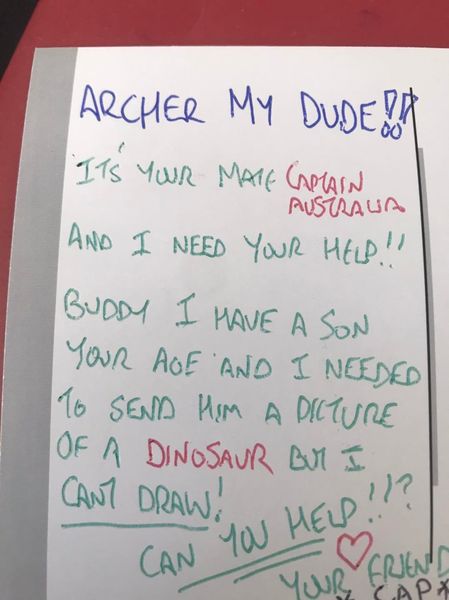 ARCHER MY DUDE!!
IT'S YOUR MATE CAPTAIN
AUSTRALIA
AND I NEED YOUR HELP!!
BUDDY I HAVE A SON
YOUR AGE AND I NEEDED
TO SEND HIM A PICTURE
OF A DINOSAUR BUT I
CANT DRAW!
CAN YOU HELP!!?
YOUR FRIEND
X CAP X